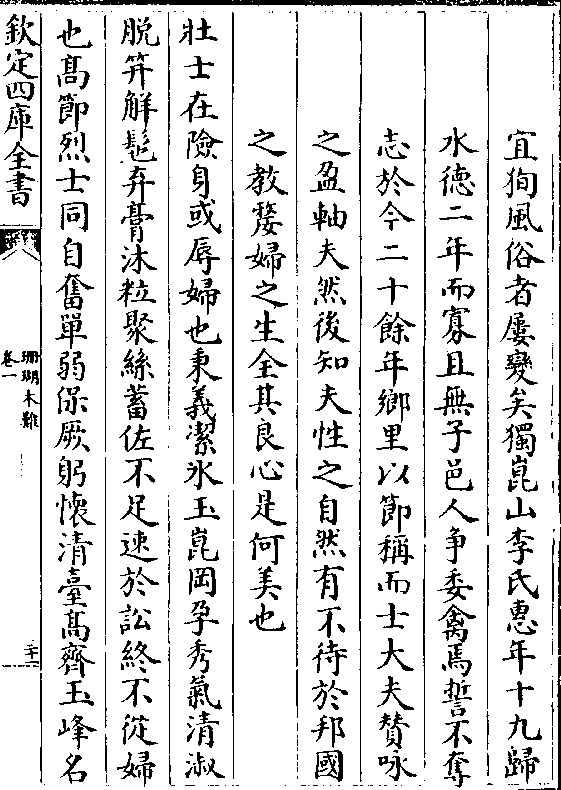 宜狥風俗者屢變矣獨崑山李氏惠年十九歸
水德二年而寡且無子邑人争委禽焉誓不奪
志於今二十餘年鄉里以節稱而士大夫賛咏
之盈軸夫然後知夫性之自然有不待於邦國
之教嫠婦之生全其良心是何美也
壯士在險身或辱婦也秉義潔氷玉崑岡孕秀氣清淑
脱笄解髢弃膏沐粒聚絲蓄佐不足速於訟終不從婦
也髙節烈士同自奮單弱保厥躬懷清臺髙齊玉峰名
欽定四庫全書
珊瑚木難
卷一